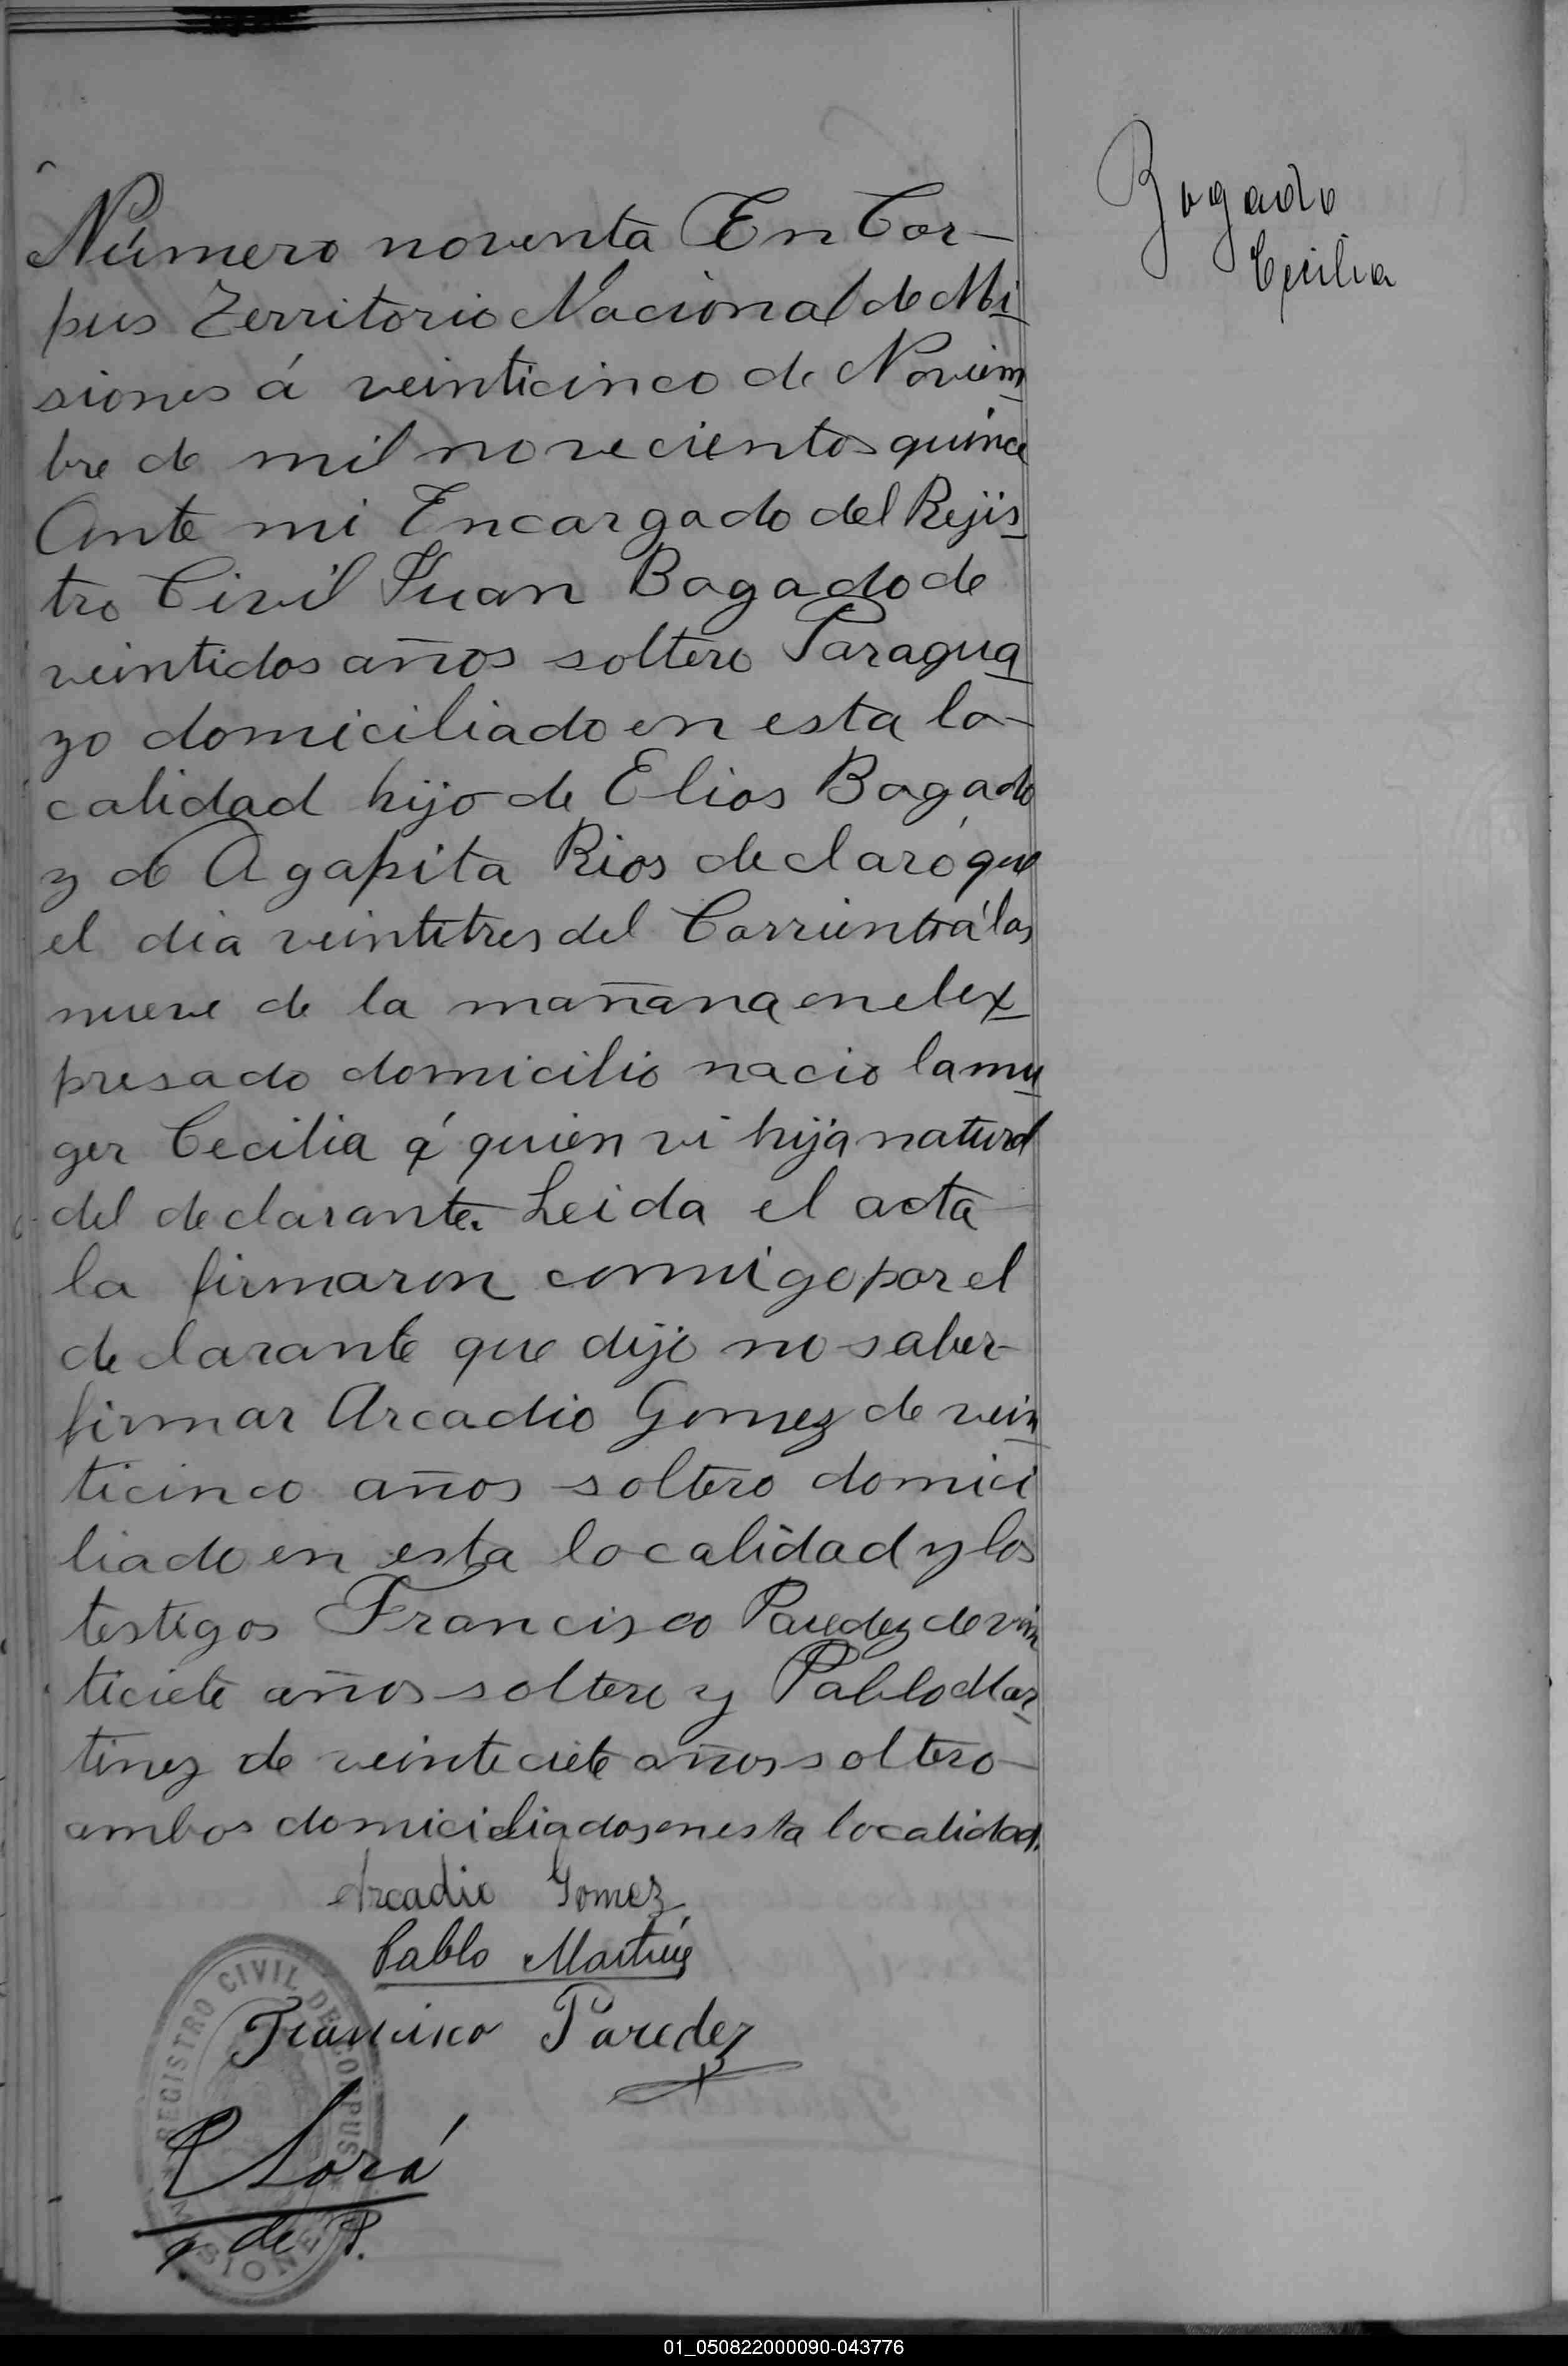 Bogado
Cecilia
Número noventa En Cor-
pus Territorio Nacional de Mi
siones á veinticinco de Noviem
bre de mil novecientos quince
Ante mi Encargado del Rejis
tro Civil Juan Bogado de
veintidos años soltero Paragua
yo domiciliado en esta lo-
calidad hijo de Elias Bogado
y de Agapita Rios declaró que
el dia veintitres del Corriente á las
nueve de la mañana en el ex
presado domicilio nacio la mu
ger Cecilia á quien vi hija natural
del declarante. Leida el acta
la firmaron conmigo por el
declarante que dijo no saber
firmar Arcadio Gomez de vein
ticinco años soltero domici
liado en esta localidad y los
testigos Francisco Paredez de vein
ticiete años soltero y Pablo Mar
tinez de veinteciete años soltero
ambos domiciliados en esta localidad.
Arcadio Gomez
Pablo Martinez
Francisco Paredez
REGISTRO CIVIL DE CORPUS
MISIONES
de P.
01_050822000090-043776